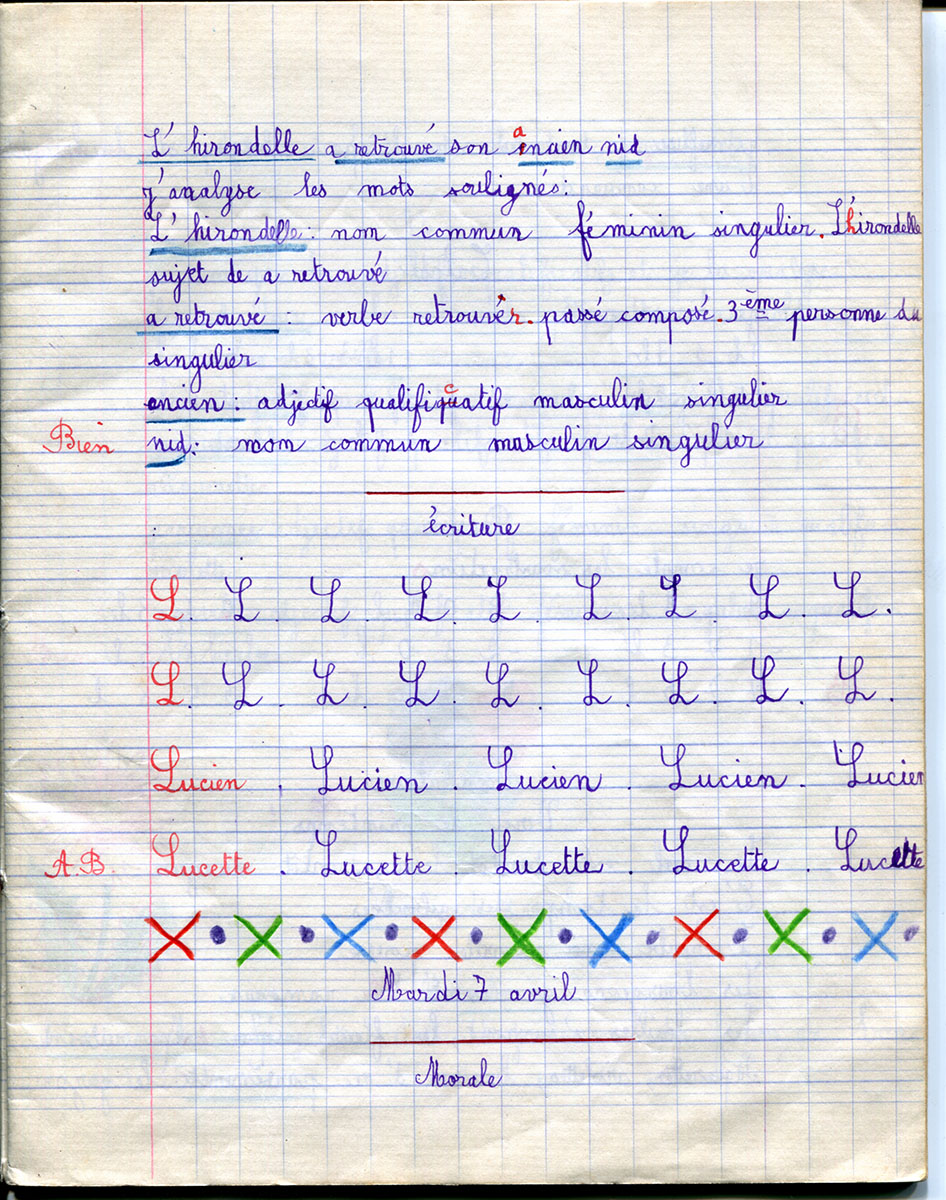 L'hirondelle a retrouvé son ancien nid
J'analyse les mots soulignés:
L'hirondelle: nom commun féminin singulier. L'hirondelle
sujet de a retrouvé
a retrouvé : verbe retrouver. passé composé. 3ème personne du
singulier
ancien : adjectif qualificatif masculin singulier
Bien nid: nom commun masculin singulier
écriture
L. L. L. L. L. L. L. L. L.
L. L. L. L. L. L. L. L. L.
Lucien . Lucien . Lucien . Lucien . Lucien
A.B. Lucette . Lucette . Lucette . Lucette . Lucette
Mardi 7 avril
Morale